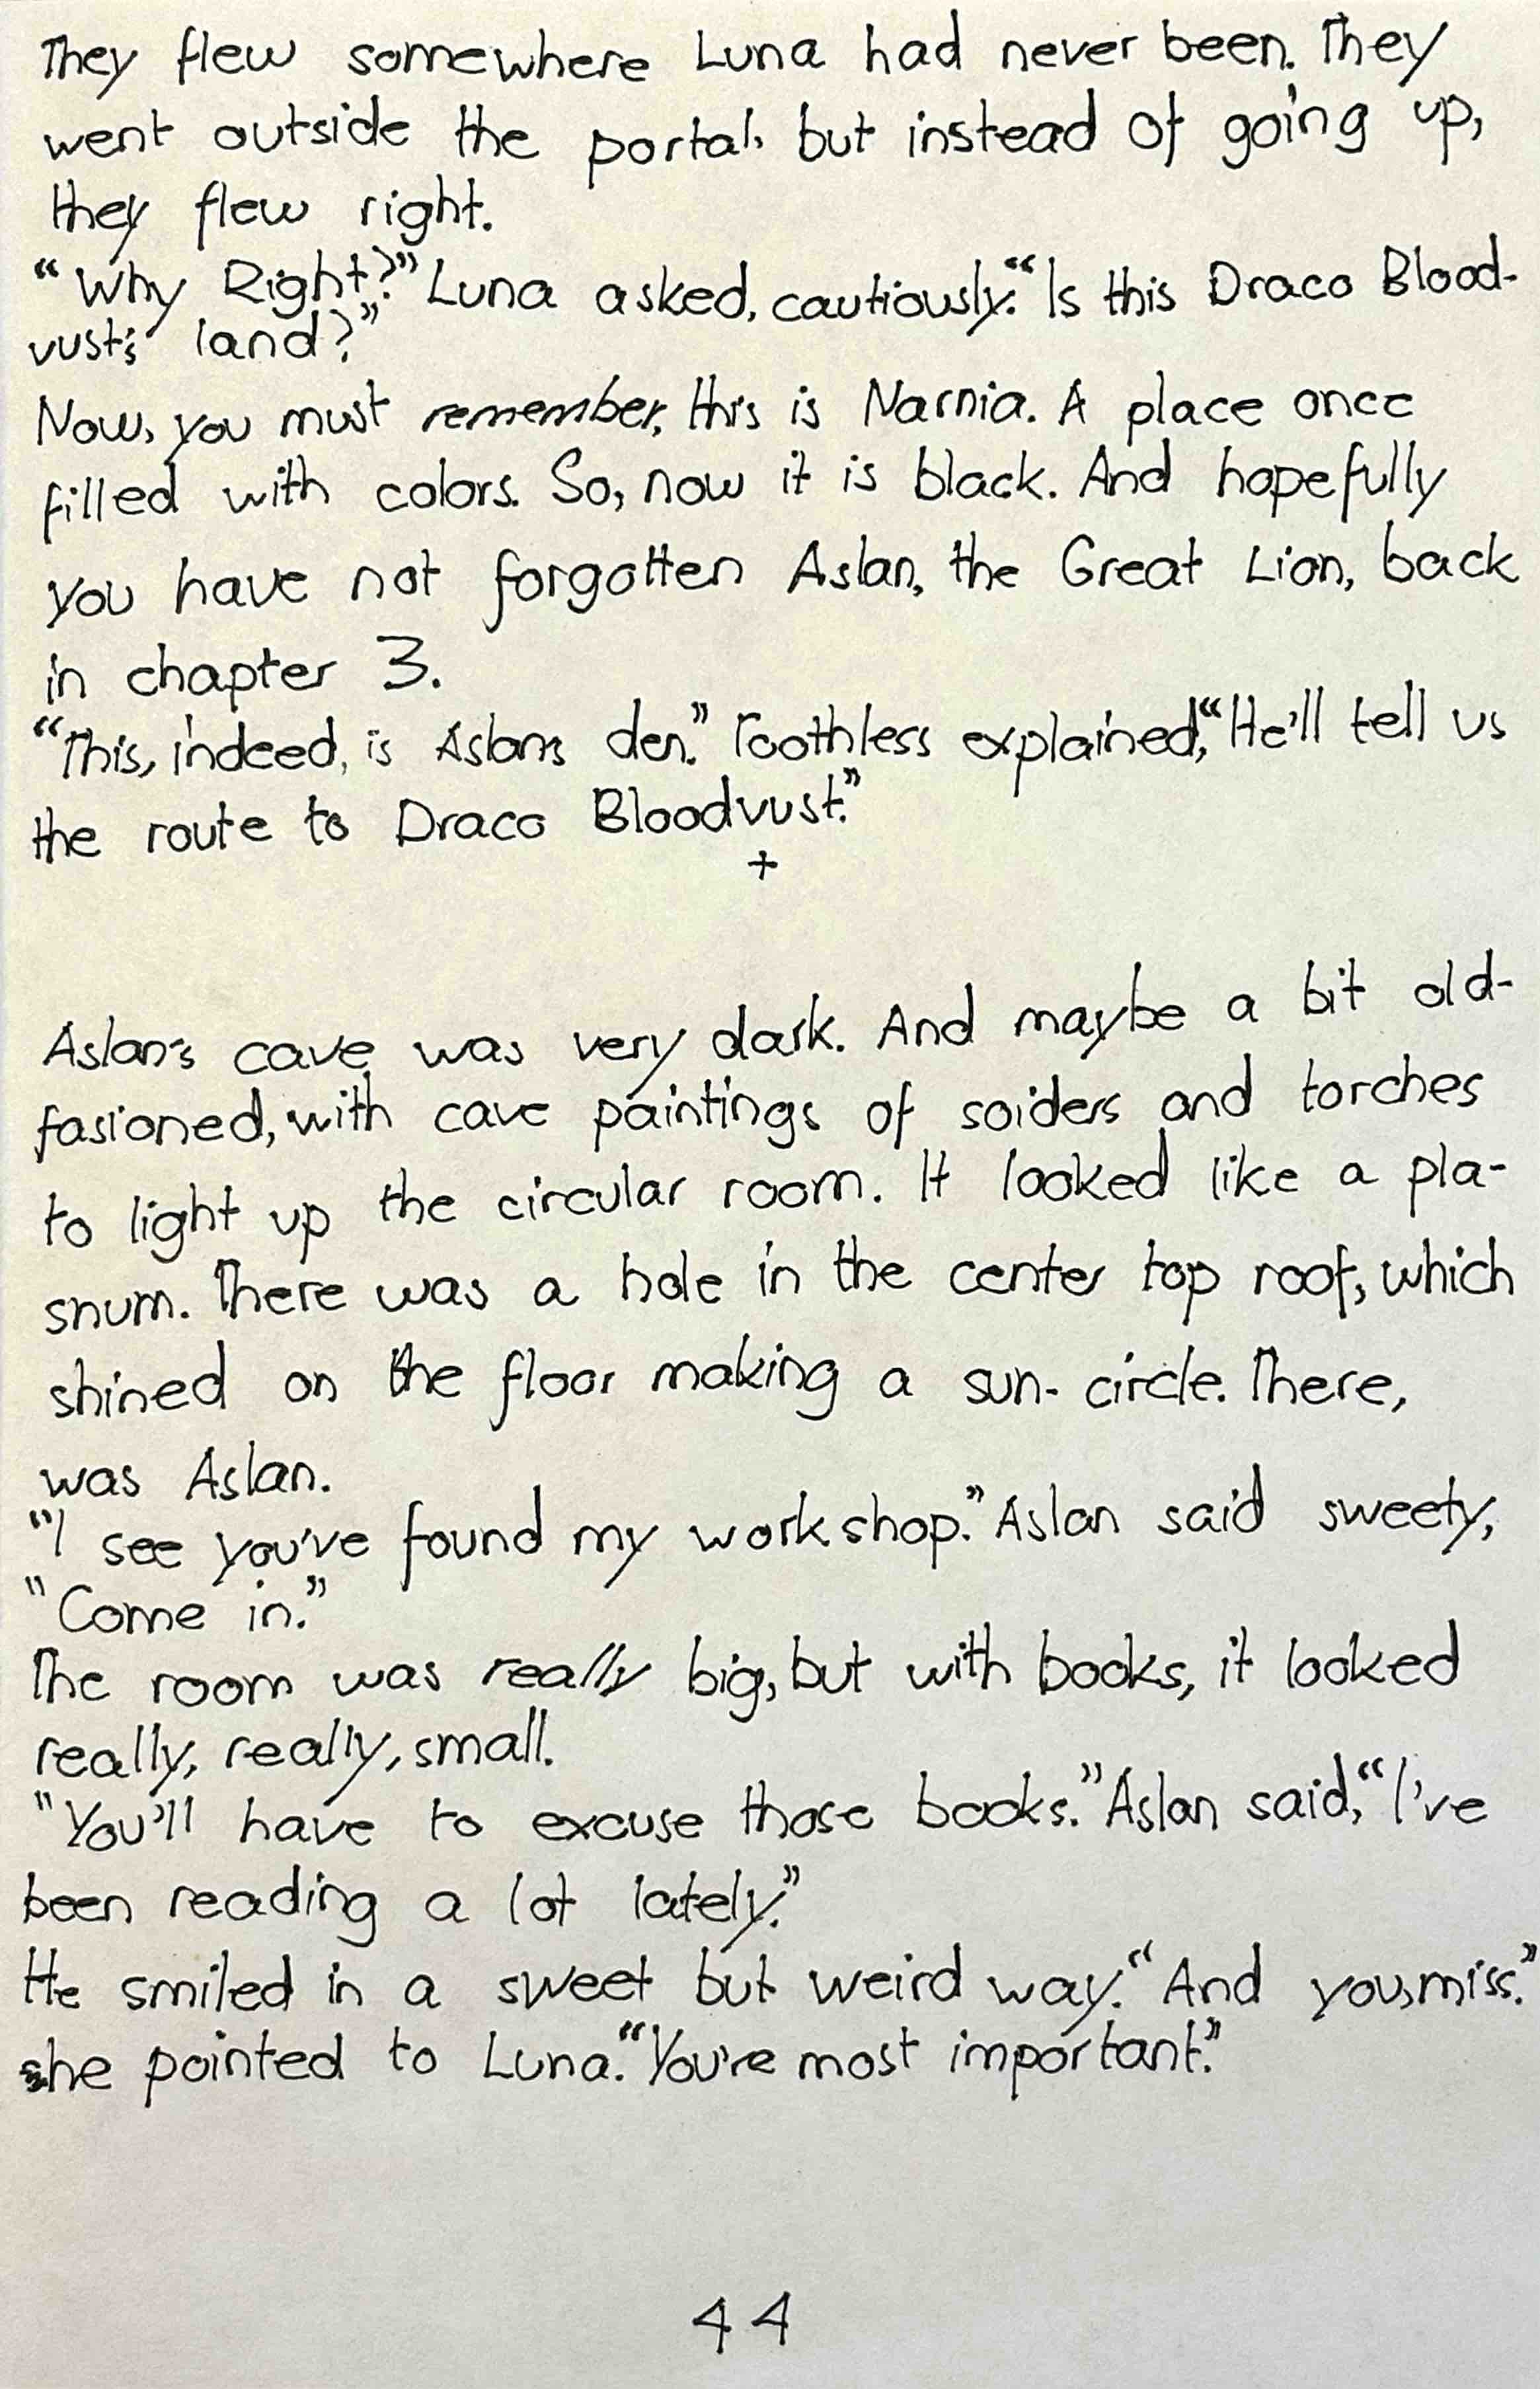 They flew somewhere Luna had never been. They
went outside the portal, but instead of going up,
they flew right.
“Why Right?” Luna asked, cautiously. “Is this Draco Blood-
vust's land?”
Now, you must remember, this is Narnia. A place once
filled with colors. So, now it is black. And hopefully
you have not forgotten Aslan, the Great Lion, back
in chapter 3.
“This, indeed, is Aslans den.” Toothless explained, “He'll tell us
the route to Draco Bloodvust.”
+
Aslan's cave was very dark. And maybe a bit old-
fasioned, with cave paintings of soiders and torches
to light up the circular room. It looked like a pla-
snum. There was a hole in the center top roof, which
shined on the floor making a sun-circle. There,
was Aslan.
“I see you've found my workshop.” Aslan said sweety,
“Come in.”
The room was really big, but with books, it looked
really, really, small.
“You'll have to excuse those books.” Aslan said, “I've
been reading a lot lately.”
He smiled in a sweet but weird way. “And you, miss.”
she pointed to Luna. “You're most important.”
44